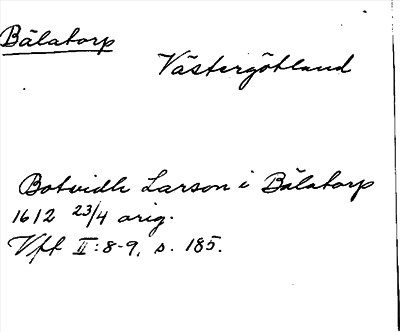 Bälatorp
Västergötland
Botvidh Larson i Bälatorp
1612 23/4 orig.
Vft II:8-9, s. 185.